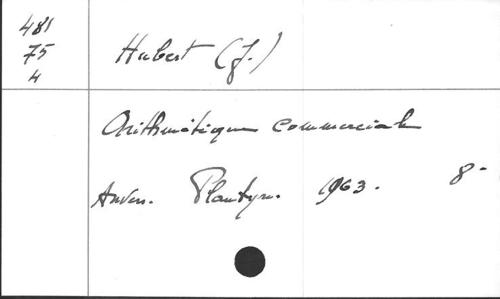 481
75
4
Hubert (J.)
Arithmétique commerciale
Anvers. Plantyn. 1963. 8-